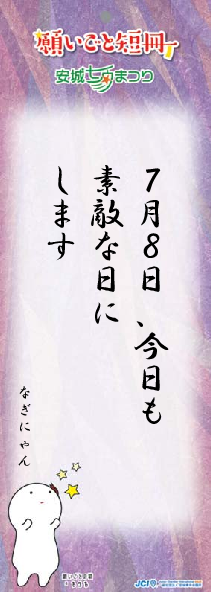 願いごと短冊
安城七夕まつり
7月8日、今日も
素敵な日に
します
なぎにゃん
JCI